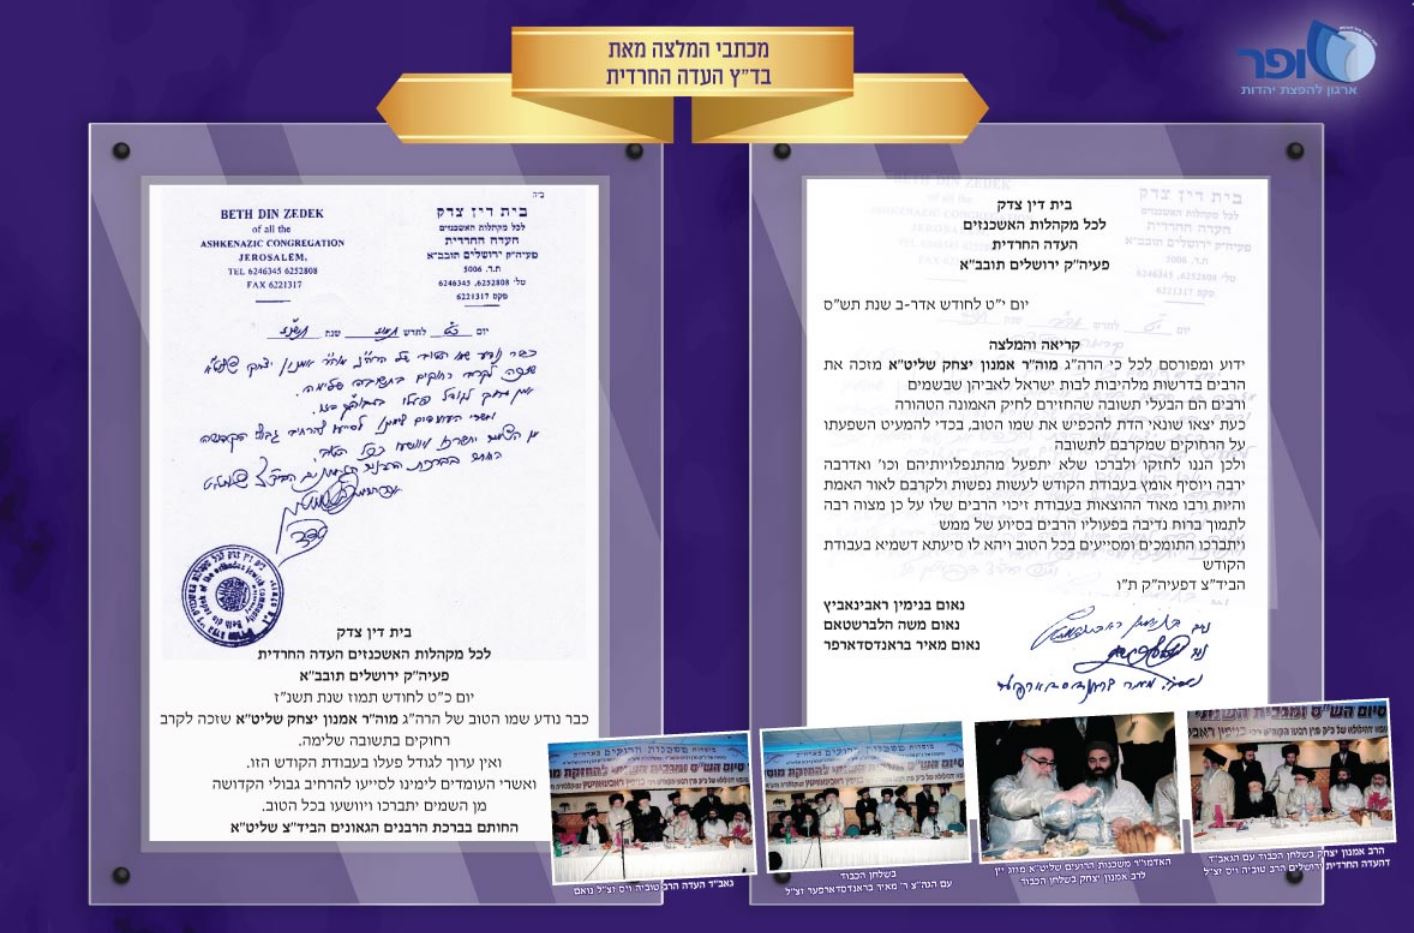 מכתבי המלצה מאת
בד"ץ העדה החרדית
ופר
ארגון להפצת יהדות
בית דין צדק
לכל מקהלות האשכנזים
העדה החרדית
פעיה"ק ירושלים תובב"א
יום י"ט לחודש אדר-ב שנת תש"ס
קריאה והמלצה
ידוע ומפורסם לכל כי הרה"ג מוה"ר אמנון יצחק שליט"א מזכה את
הרבים בדרשות מלהיבות לבות ישראל לאביהן שבשמים
ורבים הם הבעלי תשובה שהחזירם לחיק האמונה הטהורה
כעת יצאו שונאי הדת להכפיש את שמו הטוב, בכדי להמעיט השפעתו
על הרחוקים שמקרבם לתשובה
ולכן הננו לחזקו ולברכו שלא יתפעל מהתנפלויותיהם וכו' ואדרבה
ירבה ויוסיף אומץ בעבודת הקודש לעשות נפשות ולקרבם לאור האמת
והיות ורבו מאוד ההוצאות בעבודת זיכוי הרבים שלו על כן מצוה רבה
לתמוך ברוח נדיבה בפעוליו הרבים בסיוע של ממש
ויתברכו התומכים ומסייעים בכל הטוב ויהא לו סיעתא דשמיא בעבודת
הקודש
הביד"צ דפעיה"ק ת"ו
נאום בנימין ראבינאביץ
נאום משה הלברשטאם
נאום מאיר בראנדסדארפר
ב"ה
בית דין צדק
לכל מקהלות האשכנזים
העדה החרדית
פעיה"ק ירושלים תובב"א
ת.ד. 5006
טל' 6252808, 6246345
פקס 6221317
BETH DIN ZEDEK
of all the
ASHKENAZIC CONGREGATION
JEROSALEM,
TEL 6246345 6252808
FAX 6221317
יום כ"ט לחדש תמוז שנת תשנ"ז
כבר נודע שמו הטוב של הרה"ג מוה"ר אמנון יצחק שליט"א
שזכה לקרב רחוקים בתשובה שלימה.
ואין ערוך לגודל פעלו בעבודת הקודש הזו.
ואשרי העומדים לימינו לסייעו להרחיב גבולי הקדושה
מן השמים יתברכו ויוושעו בכל הטוב.
החותם בברכת הרבנים הגאונים הביד"צ שליט"א
בית דין צדק
לכל מקהלות האשכנזים העדה החרדית
פעיה"ק ירושלים תובב"א
יום כ"ט לחודש תמוז שנת תשנ"ז
כבר נודע שמו הטוב של הרה"ג מוה"ר אמנון יצחק שליט"א שזכה לקרב
רחוקים בתשובה שלימה.
ואין ערוך לגודל פעלו בעבודת הקודש הזו.
ואשרי העומדים לימינו לסייעו להרחיב גבולי הקדושה
מן השמים יתברכו ויוושעו בכל הטוב.
החותם בברכת הרבנים הגאונים הביד"צ שליט"א
הרב אמנון יצחק בשלחן הכבוד עם הגאב"ד
דהעדה החרדית ירושלים הרב טוביה ויס זצ"ל
האדמו"ר משכנות הרועים שליט"א מוזג יין
לרב אמנון יצחק בשלחן הכבוד
בשלחן הכבוד
עם הגה"צ ר' מאיר בראנדסדארפער זצ"ל
גאב"ד העדה הרב טוביה ויס זצ"ל נואם